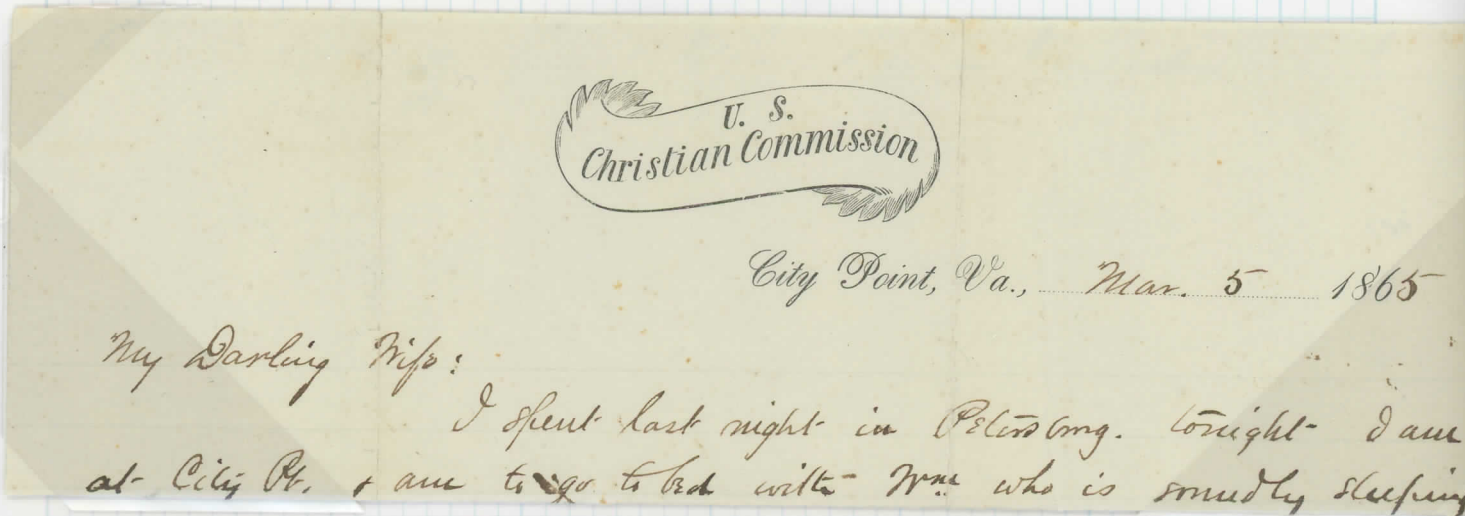 U. S.
Christian Commission
City Point, Va., Mar. 5 1865
My Darling Wife:
I spent last night in Petersburg. tonight I am
at City Pt. & am to go to bed with Wm who is soundly sleeping